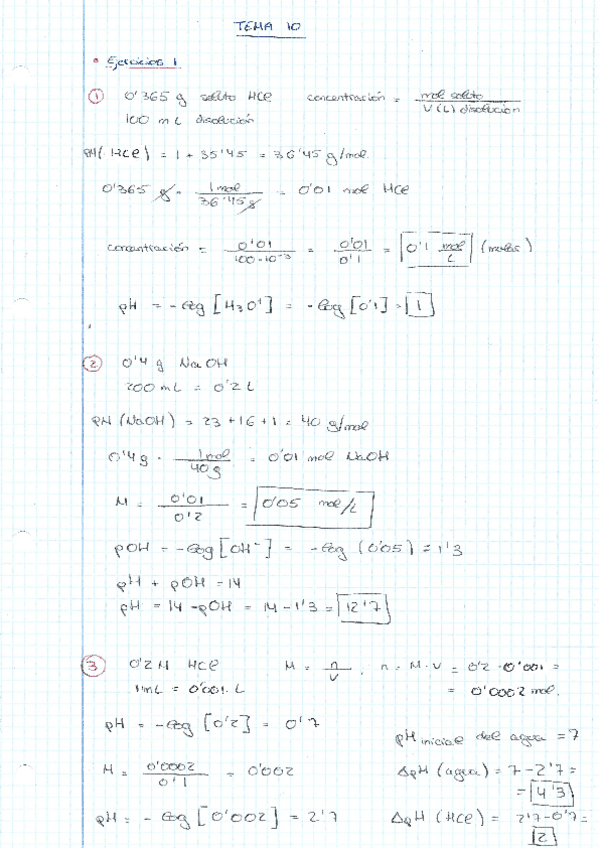 TEMA 10
• Ejercicios 1
① 0'365 g soluto HCl concentración = mol soluto / V(L) disolución
100 mL disolución
PM(HCl) = 1 + 35'45 = 36'45 g/mol.
0'365 g · 1 mol / 36'45 g = 0'01 mol HCl
concentración = 0'01 / 100·10⁻³ = 0'01 / 0'1 = 0'1 mol/L (molar)
pH = -log [H₃O⁺] = -log [0'1] = 1
② 0'4 g NaOH
200 mL = 0'2 L
PM (NaOH) = 23 + 16 + 1 = 40 g/mol
0'4 g · 1 mol / 40 g = 0'01 mol NaOH
M = 0'01 / 0'2 = 0'05 mol/L
pOH = -log [OH⁻] = -log (0'05) = 1'3
pH + pOH = 14
pH = 14 - pOH = 14 - 1'3 = 12'7
③ 0'2 M HCl M = n / V . n = M·V = 0'2 · 0'001 =
1 mL = 0'001 L = 0'0002 mol.
pH = -log [0'2] = 0'7
pH inicial del agua = 7
M = 0'0002 / 0'1 = 0'002 ΔpH (agua) = 7 - 2'7 =
= 4'3
pH = -log [0'002] = 2'7 ΔpH (HCl) = 2'7 - 0'7 =
2